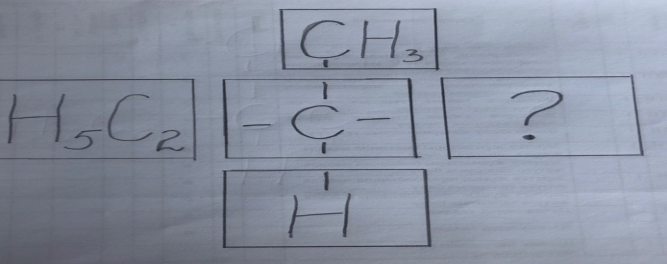 CH₃
H₅C₂ -C- ?
H